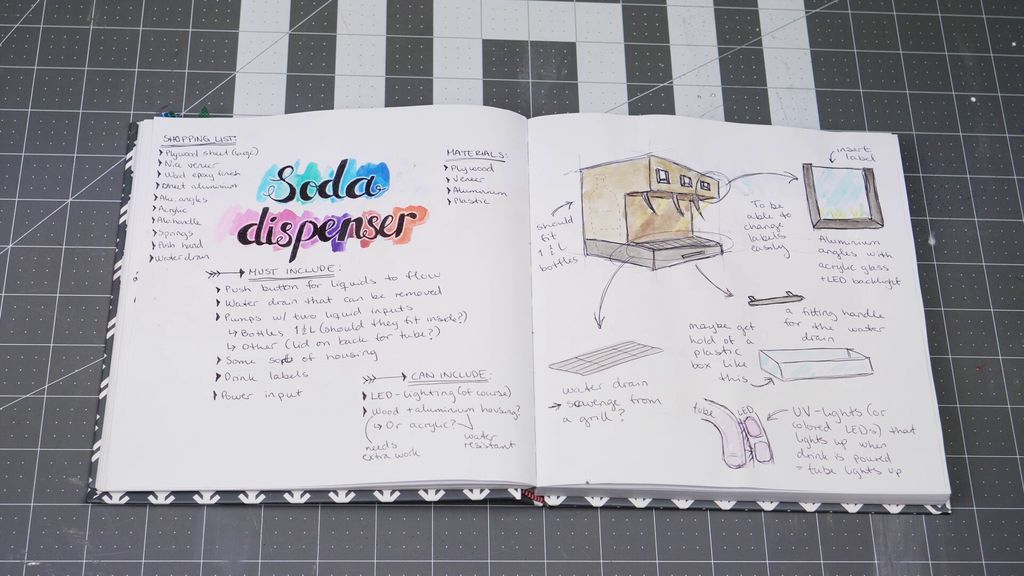 SHOPPING LIST:
Plywood sheet (large)
Nice veneer
Wood epoxy finish
Sheet aluminium
Alu. angles
Acrylic
Alu. handle
Springs
Push
Water drain
Soda
dispenser
MATERIALS:
Plywood
Veneer
Aluminium
Plastic
MUST INCLUDE:
Push button for liquids to flow
Water drain that can be removed
Pumps w/ two liquid inputs
↳ Bottles 1½L (should they fit inside?)
↳ Other (lid on back for tube?)
Some sort of housing
Drink labels
Power input
CAN INCLUDE:
LED-lighting (of course)
Wood + aluminium housing?
↳ Or acrylic?
needs
extra work
water
resistant
should
fit
1½L
bottles
insert
label
To be
able to
change
labels
easily
Aluminium
angles with
acrylic glass
+ LED backlight
a fitting handle
for the water
drain
maybe get
hold of a
plastic
box like
this
water drain
→ scavenge from
a grill?
tube
LED
UV-lights (or
colored LEDs) that
lights up when
drink is poured
= tube lights up